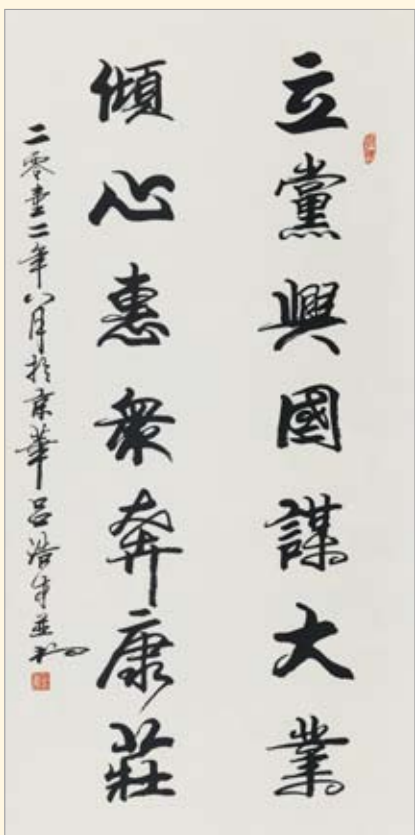 立黨興國謀大業
傾心惠眾奔康莊
二零壹二年八月於京華呂浩才並書